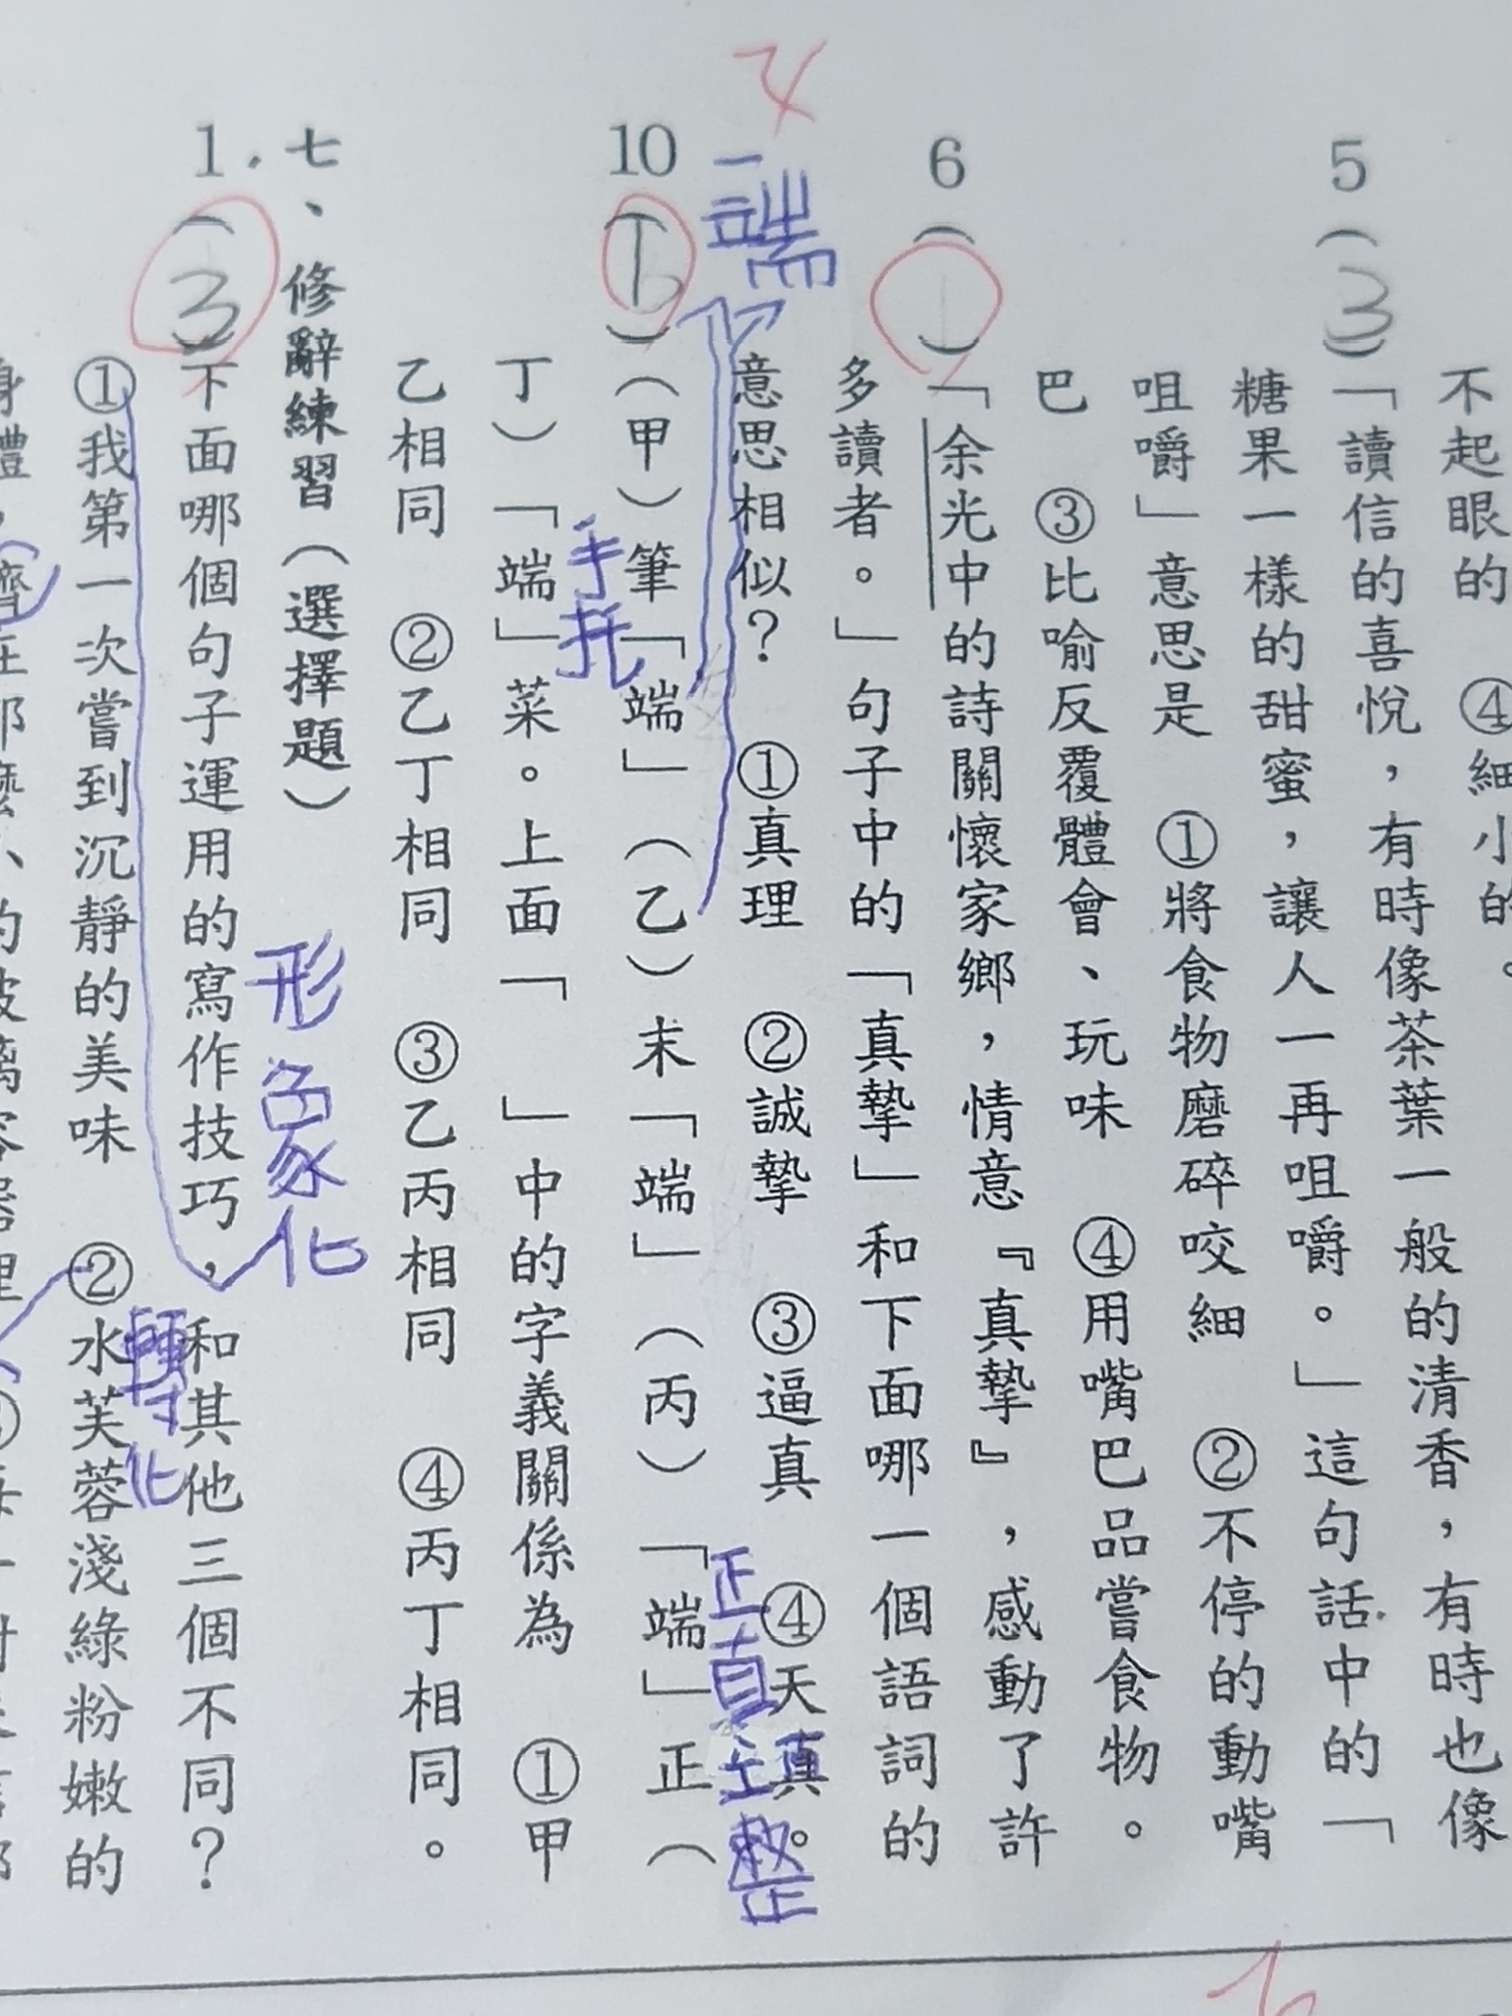 不起眼的 ④細小的。
5(3)「讀信的喜悅，有時像茶葉一般的清香，有時也像
糖果一樣的甜蜜，讓人一再咀嚼。」這句話中的「
咀嚼」意思是 ①將食物磨碎咬細 ②不停的動嘴
巴 ③比喻反覆體會、玩味 ④用嘴巴品嘗食物。
6()「余光中的詩關懷家鄉，情意『真摯』，感動了許
多讀者。」句子中的「真摯」和下面哪一個語詞的
意思相似？ ①真理 ②誠摯 ③逼真 ④天真。
端
正直
整
10()(甲)筆「端」(乙)末「端」(丙)「端」正(
手托
丁)「端」菜。上面「 」中的字義關係為 ①甲
乙相同 ②乙丁相同 ③乙丙相同 ④丙丁相同。
七、修辭練習(選擇題)
形象化
1.(3)下面哪個句子運用的寫作技巧，和其他三個不同？
轉化
①我第一次嘗到沉靜的美味 ②水芙蓉淺綠粉嫩的